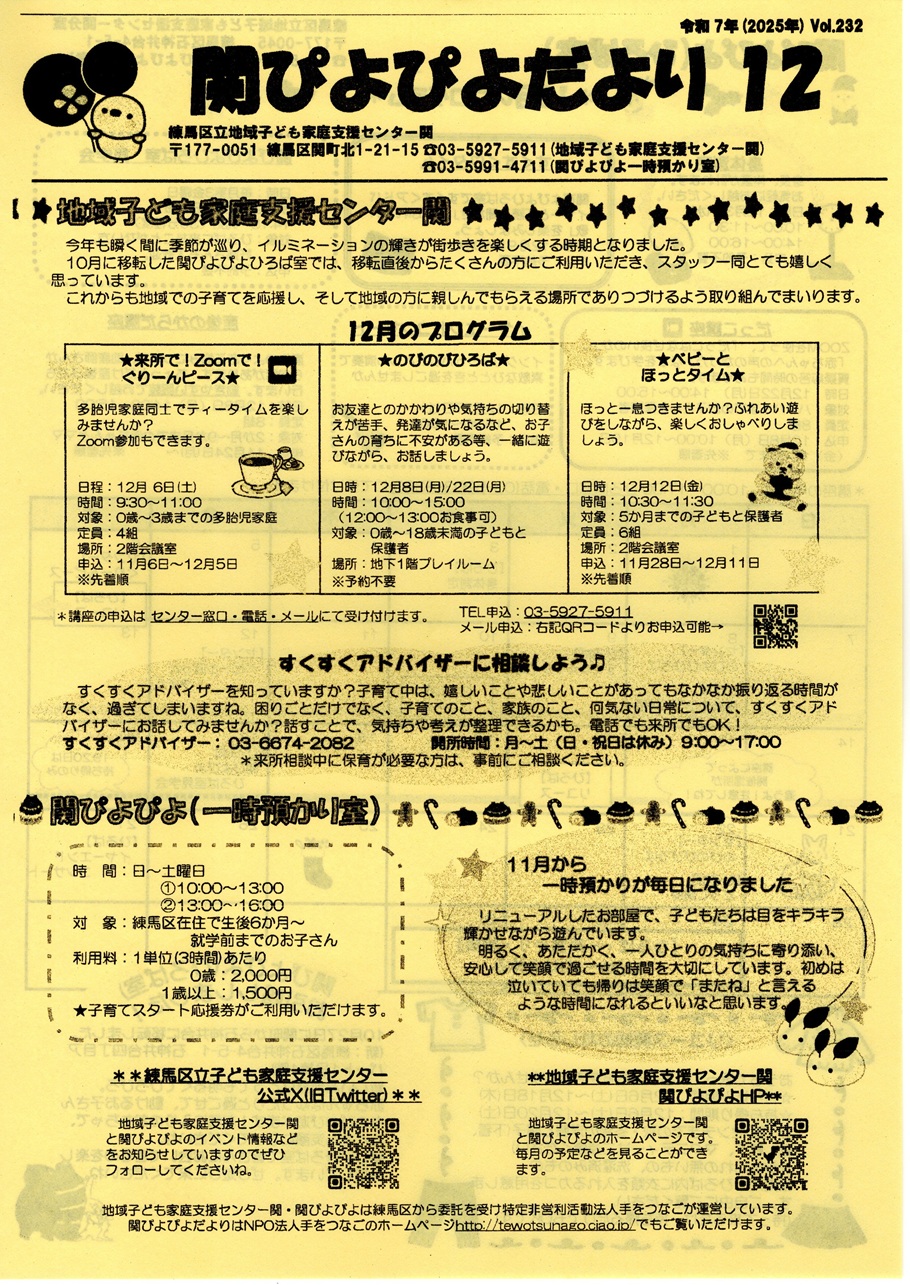 令和7年(2025年) Vol.232
関ぴよぴよだより 12
練馬区立地域子ども家庭支援センター関
〒177-0051 練馬区関町北1-21-15 ☎03-5927-5911(地域子ども家庭支援センター関)
☎03-5991-4711(関ぴよぴよ一時預かり室)
地域子ども家庭支援センター関
今年も瞬く間に季節が巡り、イルミネーションの輝きが街歩きを楽しくする時期となりました。
10月に移転した関ぴよぴよひろば室では、移転直後からたくさんの方にご利用いただき、スタッフ一同とても嬉しく
思っています。
これからも地域での子育てを応援し、そして地域の方に親しんでもらえる場所でありつづけるよう取り組んでまいります。
12月のプログラム
★来所で!Zoomで!
ぐりーんピース★
多胎児家庭同士でティータイムを楽し
みませんか?
Zoom参加もできます。
日程:12月 6日(土)
時間:9:30~11:00
対象:0歳~3歳までの多胎児家庭
定員:4組
場所:2階会議室
申込:11月6日~12月5日
※先着順
★のびのびひろば★
お友達とのかかわりや気持ちの切り替
えが苦手、発達が気になるなど、お子
さんの育ちに不安がある等、一緒に遊
びながら、お話しましょう。
日時:12月8日(月)/22日(月)
時間:10:00~15:00
(12:00~13:00お食事可)
対象:0歳~18歳未満の子どもと
保護者
場所:地下1階プレイルーム
※予約不要
★ベビーと
ほっとタイム★
ほっと一息つきませんか?ふれあい遊
びをしながら、楽しくおしゃべりしま
しょう。
日時:12月12日(金)
時間:10:30~11:30
対象:5か月までの子どもと保護者
定員:6組
場所:2階会議室
申込:11月28日~12月11日
※先着順
*講座の申込は センター窓口・電話・メールにて受け付けます。
TEL申込:03-5927-5911
メール申込:右記QRコードよりお申込可能→
すくすくアドバイザーに相談しよう♫
すくすくアドバイザーを知っていますか?子育て中は、嬉しいことや悲しいことがあってもなかなか振り返る時間が
なく、過ぎてしまいますね。困りごとだけでなく、子育てのこと、家族のこと、何気ない日常について、すくすくアド
バイザーにお話してみませんか?話すことで、気持ちや考えが整理できるかも。電話でも来所でもOK!
すくすくアドバイザー: 03-6674-2082 開所時間:月~土(日・祝日は休み)9:00~17:00
*来所相談中に保育が必要な方は、事前にご相談ください。
関ぴよぴよ(一時預かり室)
時 間:日~土曜日
①10:00~13:00
②13:00~16:00
対 象:練馬区在住で生後6か月~
就学前までのお子さん
利用料:1単位(3時間)あたり
0歳:2,000円
1歳以上:1,500円
★子育てスタート応援券がご利用いただけます。
11月から
一時預かりが毎日になりました
リニューアルしたお部屋で、子どもたちは目をキラキラ
輝かせながら遊んでいます。
明るく、あたたかく、一人ひとりの気持ちに寄り添い、
安心して笑顔で過ごせる時間を大切にしています。初めは
泣いていても帰りは笑顔で「またね」と言える
ような時間になれるといいなと思います。
**練馬区立子ども家庭支援センター
公式X(旧Twitter)**
地域子ども家庭支援センター関
と関ぴよぴよのイベント情報など
をお知らせしていますのでぜひ
フォローしてくださいね。
**地域子ども家庭支援センター関
関ぴよぴよHP**
地域子ども家庭支援センター関
と関ぴよぴよのホームページです。
毎月の予定などを見ることができ
ます。
地域子ども家庭支援センター関・関ぴよぴよは練馬区から委託を受け特定非営利活動法人手をつなごが運営しています。
関ぴよぴよだよりはNPO法人手をつなごのホームページhttp://tewotsunago.ciao.jp/でもご覧いただけます。